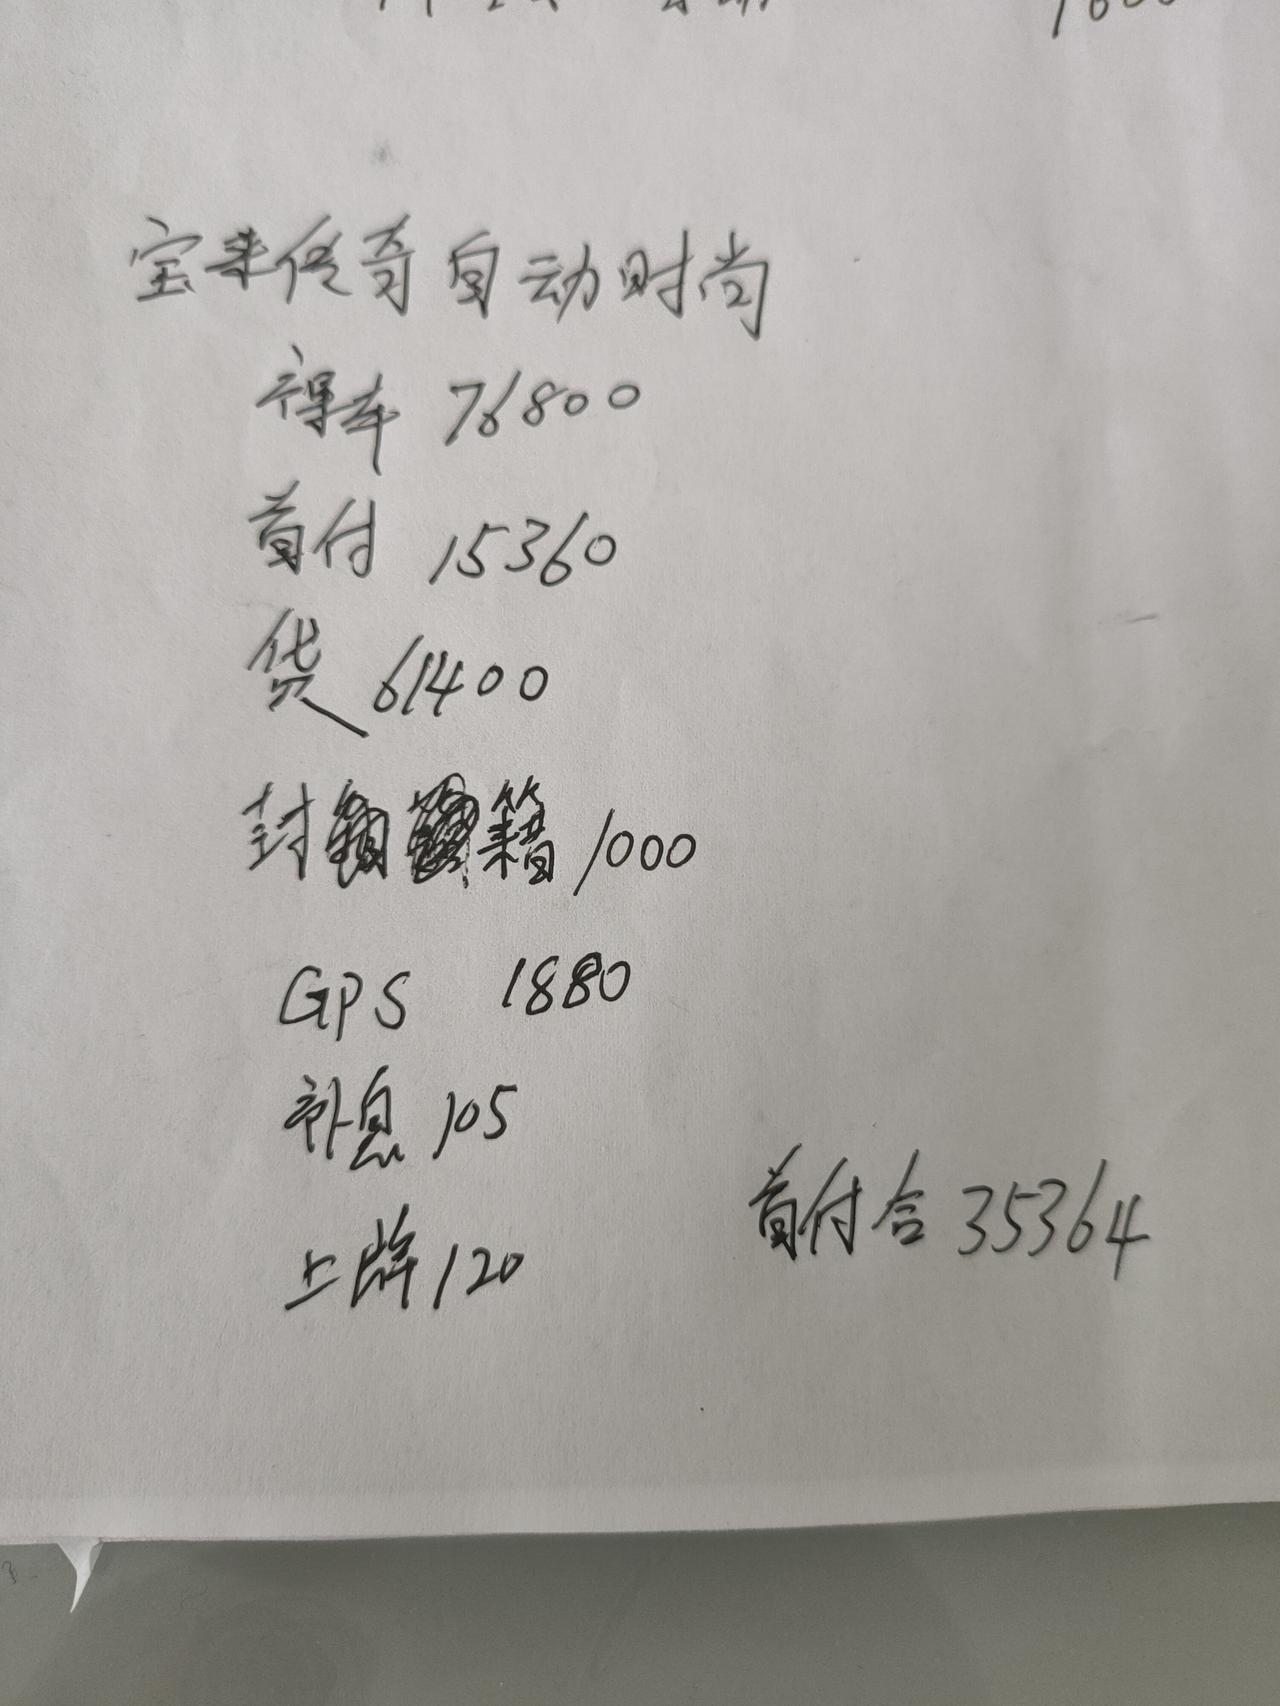 宝来传奇自动时尚
裸车 76800
首付 15360
贷 61400
封籍 1000
GPS 1880
补息 105
上牌 120
首付合 35364